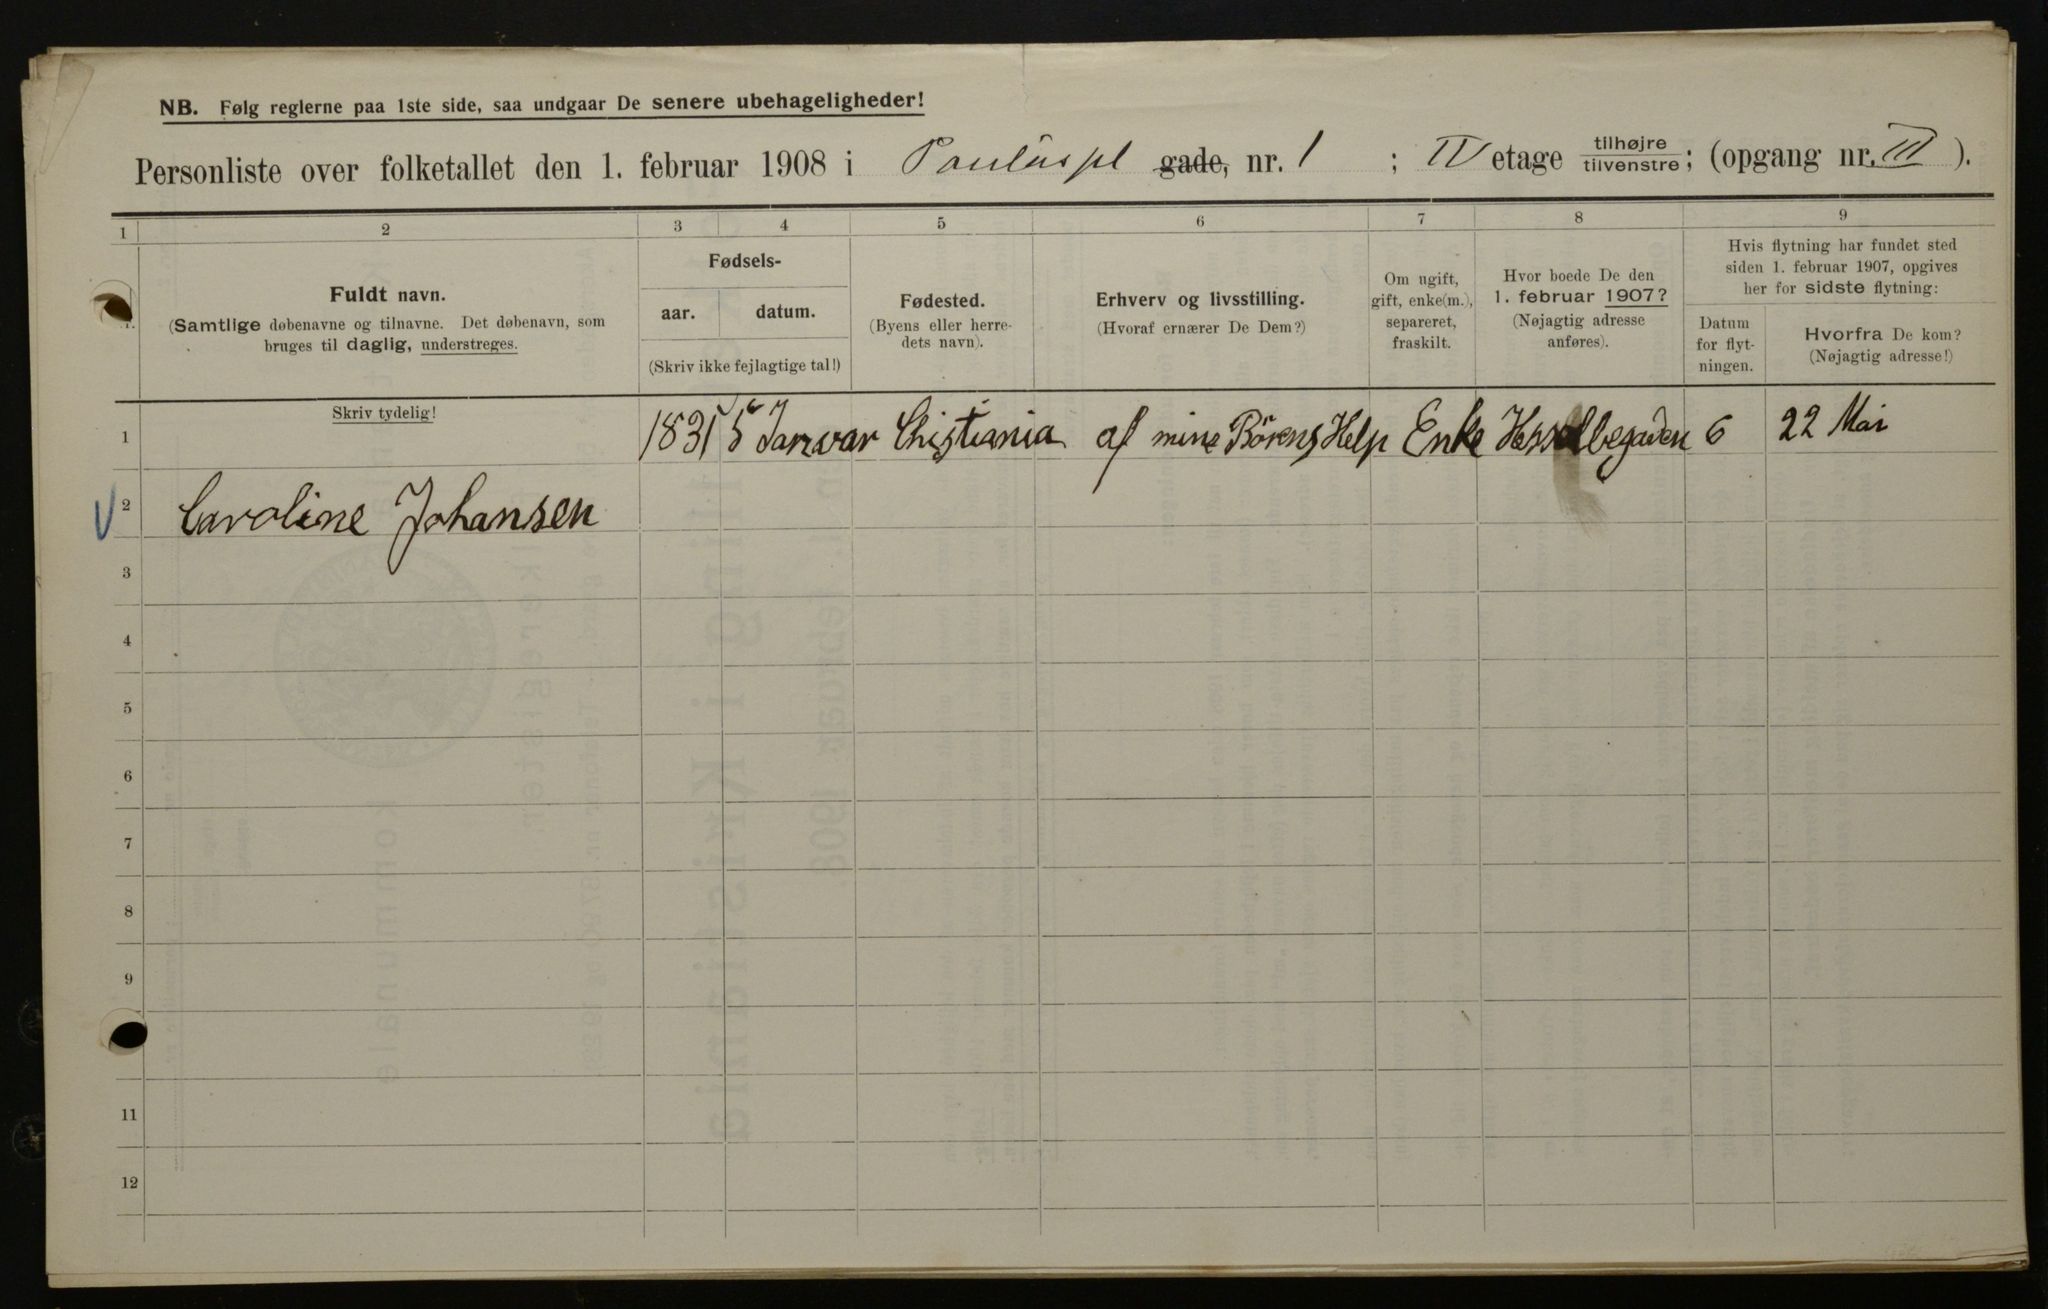 NB. Følg reglerne paa 1ste side, saa undgaar De senere ubehageligheder!
Personliste over folketallet den 1. februar 1908 i Paulus pl gade, nr. 1 ; IV etage tilhøjre tilvenstre; (opgang nr. III ).
1 2 3 4 5 6 7 8 9
Fuldt navn.
(Samtlige døbenavne og tilnavne. Det døbenavn, som
bruges til daglig, understreges.
Fødsels-
aar. datum.
(Skriv ikke fejlagtige tal!)
Fødested.
(Byens eller herre-
dets navn).
Erhverv og livsstilling.
(Hvoraf ernærer De Dem?)
Om ugift,
gift, enke(m.),
separeret,
fraskilt.
Hvor boede De den
1. februar 1907?
(Nøjagtig adresse
anføres).
Hvis flytning har fundet sted
siden 1. februar 1907, opgives
her for sidste flytning:
Datum
for flyt-
ningen.
Hvorfra De kom?
(Nøjagtig adresse!)
Skriv tydelig!
1 1831 5 Januar Christiania af mine Börens Help Enke Hesselbegaden 6 22 Mai
2 Caroline Johansen
3
4
5
6
7
8
9
11
12